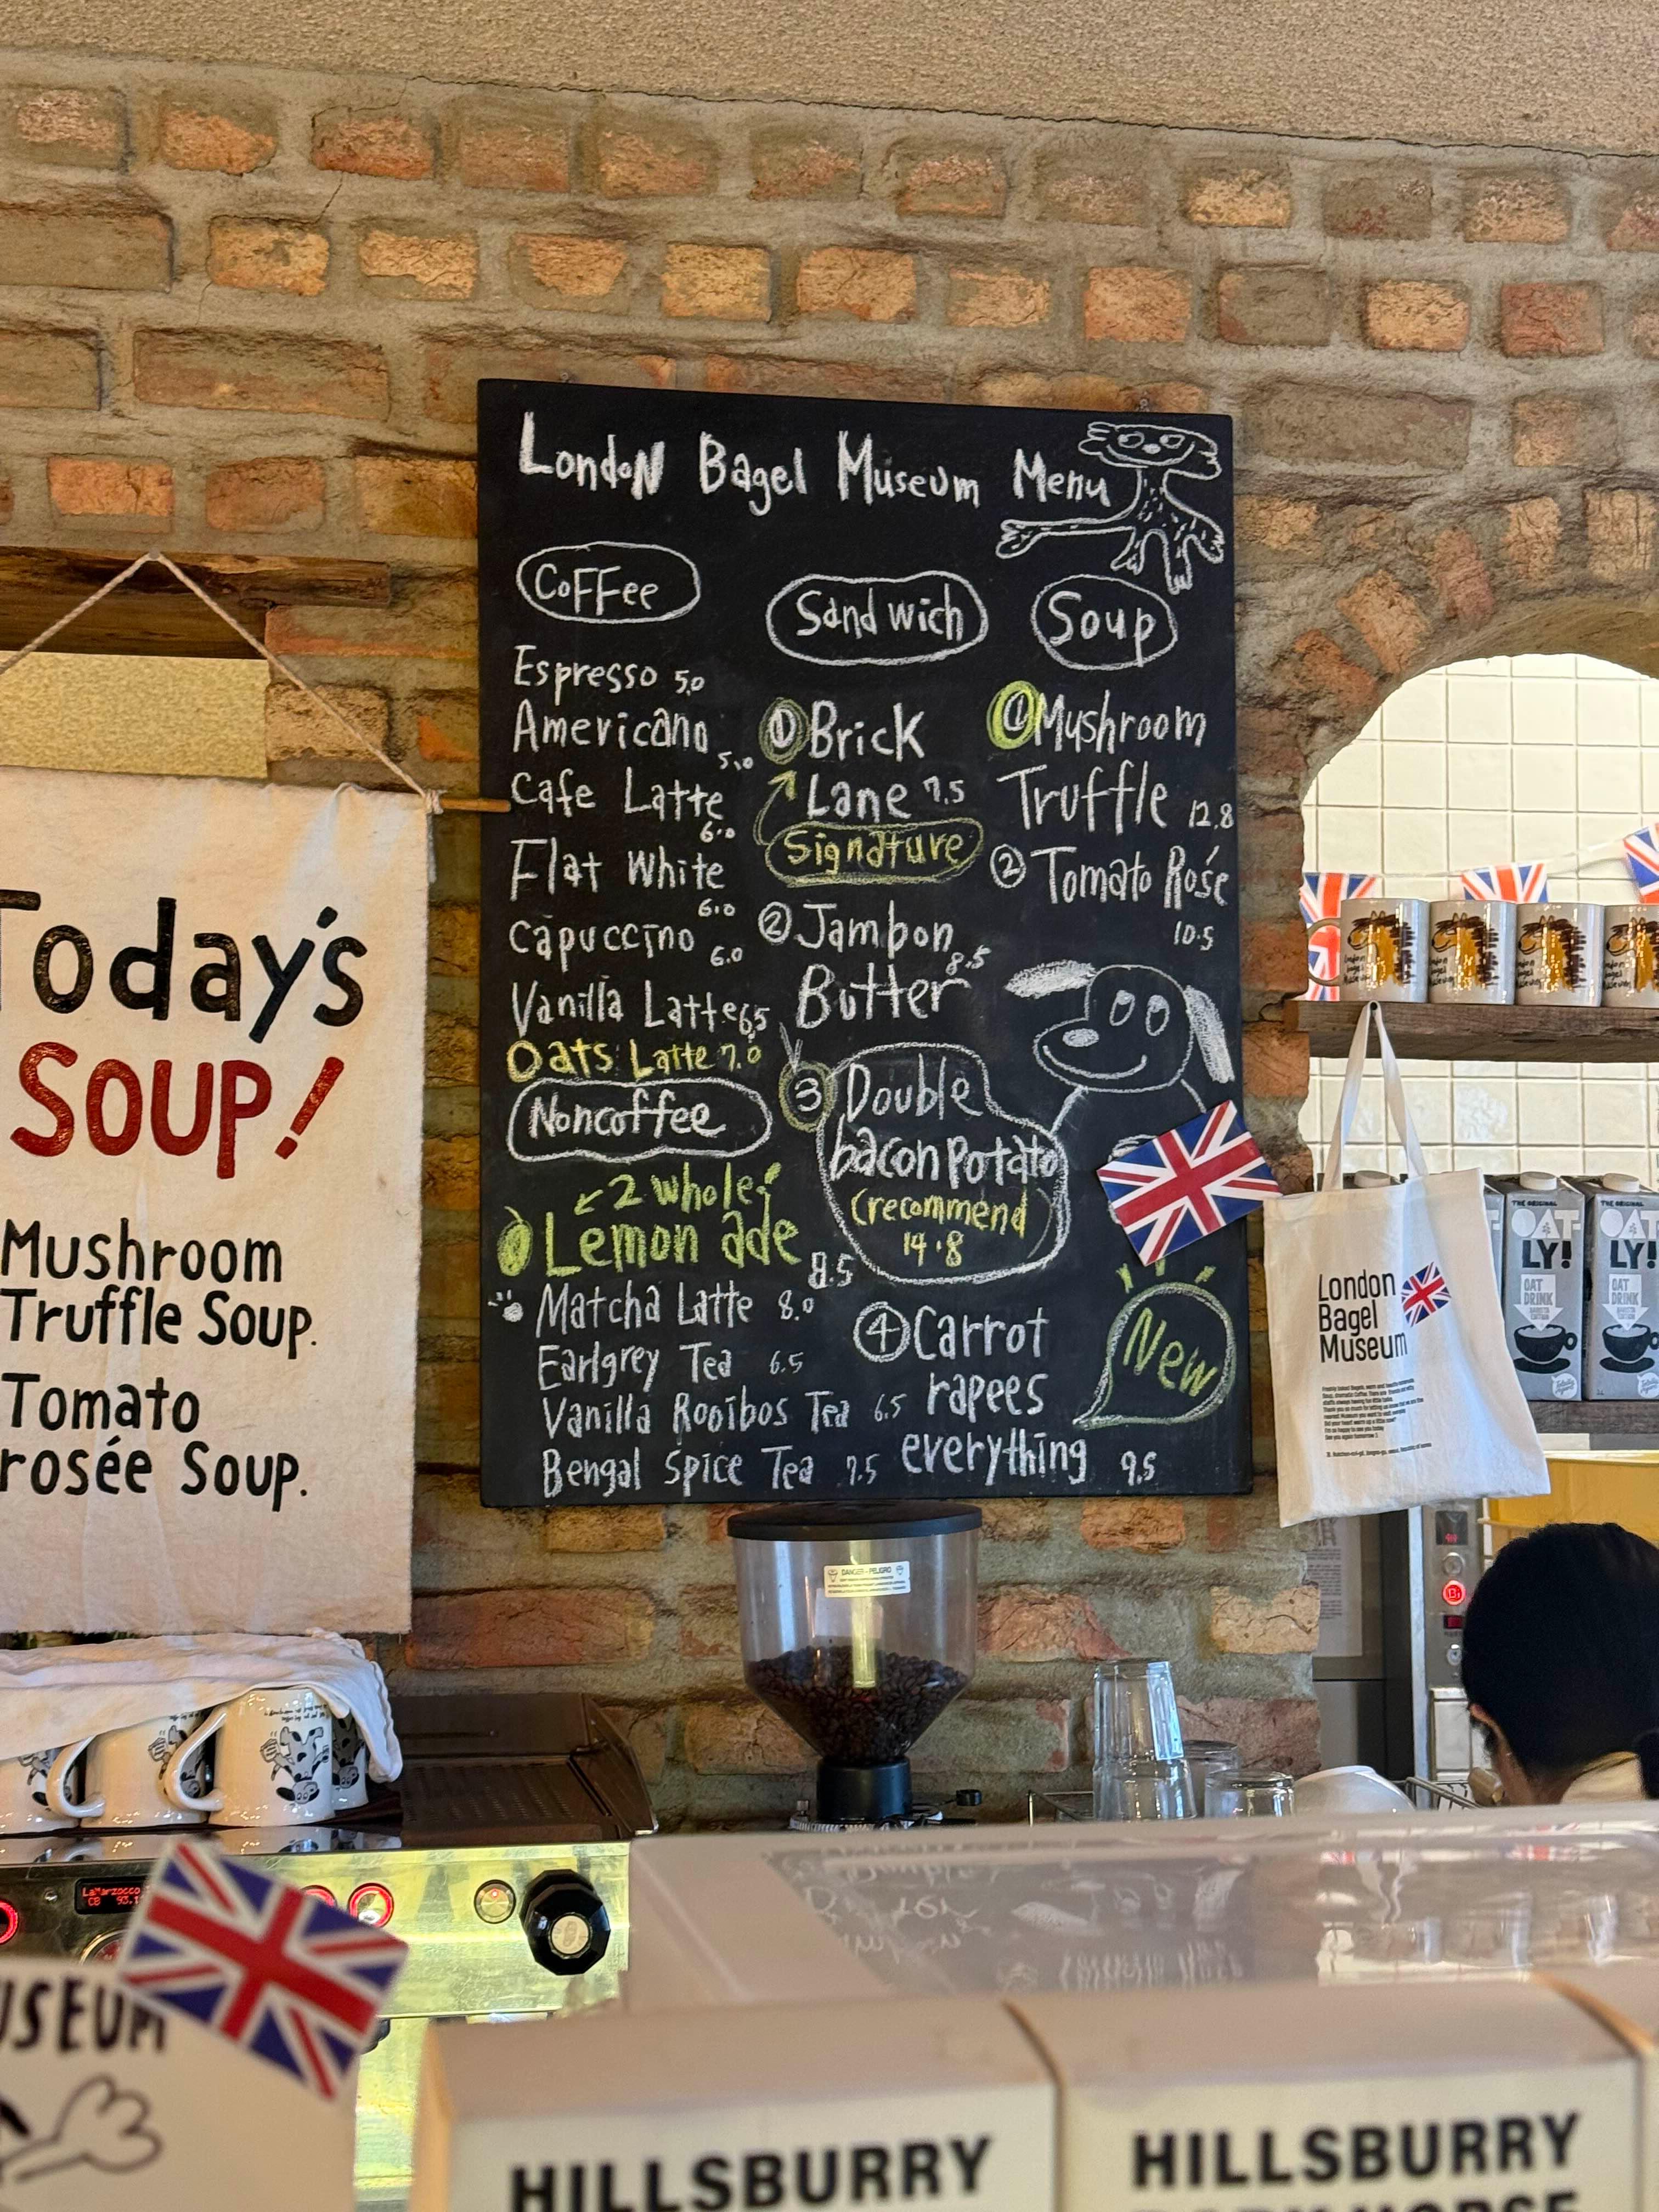 London Bagel Museum Menu
Coffee
Espresso 5.0
Americano 5.0
Cafe Latte 6.0
Flat White 6.0
Capuccino 6.0
Vanilla Latte 6.5
Oats Latte 7.0
Noncoffee
2 whole
Lemon ade 8.5
Matcha Latte 8.0
Earlgrey Tea 6.5
Vanilla Rooibos Tea 6.5
Bengal Spice Tea 7.5
Sandwich
① Brick
Lane 7.5
Signature
② Jambon
Butter 8.5
③ Double
bacon potato
(recommend
14.8
④ Carrot
rapees
everything 9.5
New
Soup
① Mushroom
Truffle 12.8
② Tomato Rosé
10.5
Today's
SOUP!
Mushroom
Truffle Soup.
Tomato
rosée Soup.
London
Bagel
Museum
THE ORIGINAL
OAT-
LY!
OAT
DRINK
THE ORIGINAL
OAT-
LY!
OAT
DRINK
DANGER - PELIGRO
LaMarzocco
USEUM
HILLSBURRY
HILLSBURRY